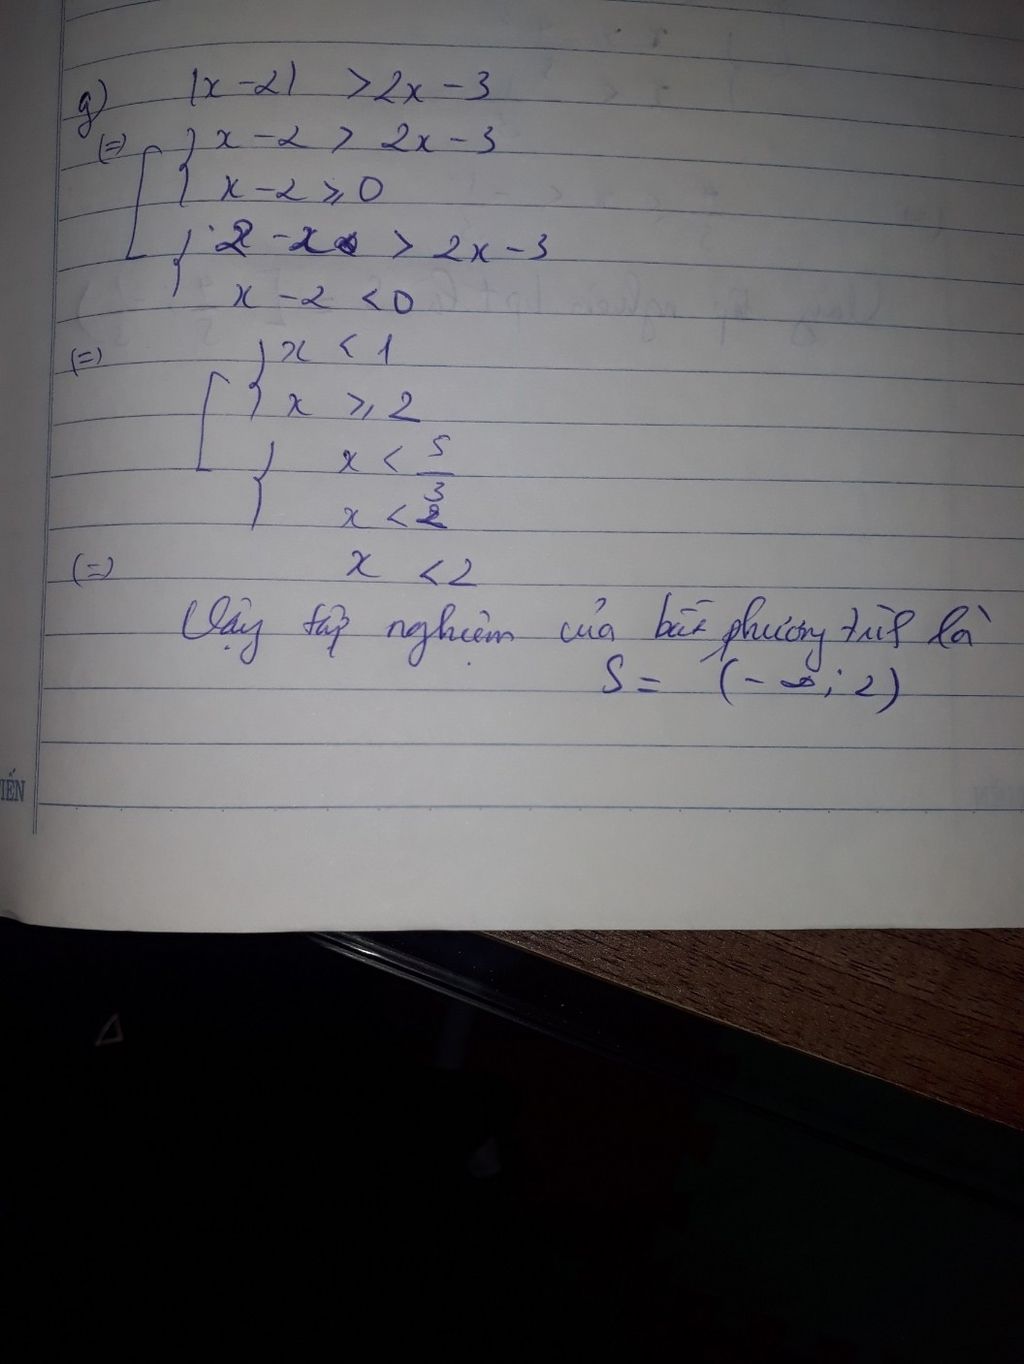 g) |x-2| > 2x-3
(=) [ { x-2 > 2x-3
x-2 ≥ 0
{ 2-x > 2x-3
x-2 < 0
(=) [ { x < 1
x ≥ 2
{ x < 5/3
x < 2
(=) x < 2
Vậy tập nghiệm của bất phương trìh là
S = (-∞; 2)
IẾN